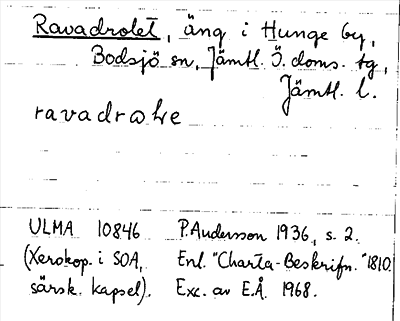 Ravadrolet, äng i Hunge by,
Bodsjö sn, Jämtl. Ö. doms. tg,
Jämtl. l.
ravadrωɫe
ULMA 10846 P. Andersson 1936, s. 2.
(Xerokop. i SOA, Enl. "Charta-Beskrifn." 1810.
särsk. kapsel). Exc. av E.Å. 1968.